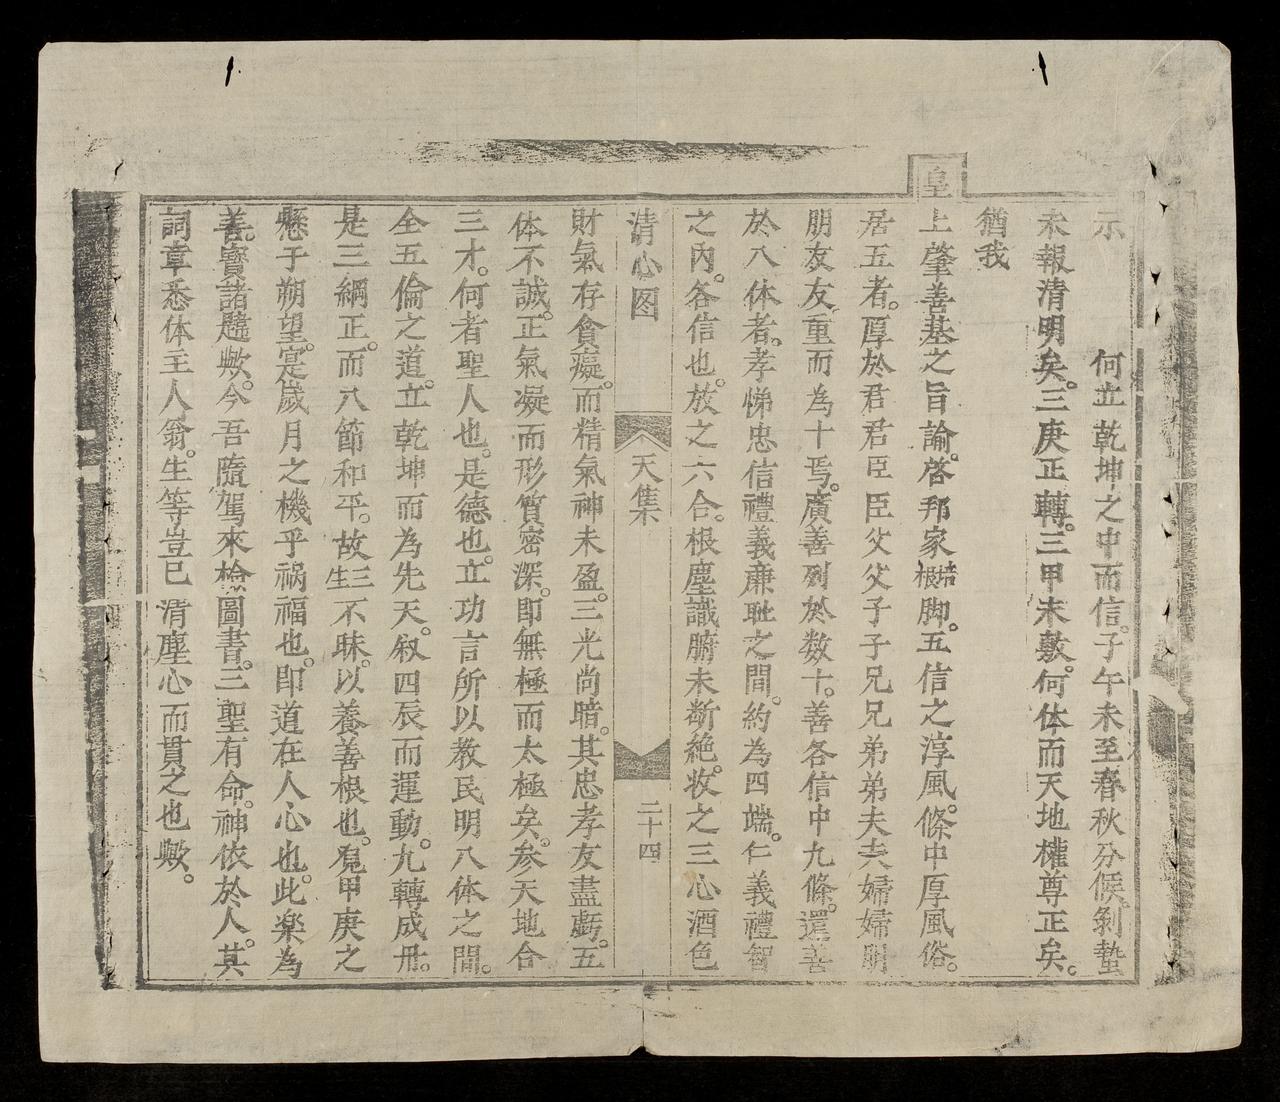 示　何立乾坤之中而信。子午未至春秋分候。剝蟄
未報清明矣。三庚正轉。三甲未敷。何体而天地權尊正矣。
猶我
皇上肇善基之旨諭。啓邦家培根脚。五信之淳風。條中厚風俗。
居五者。厚於君君臣臣父父子子兄兄弟弟夫夫婦婦朋
朋友友重而為十焉。廣善列於数十。善各信中九條。還善
於八体者。孝悌忠信禮義亷耻之間。約為四端。仁義禮智
之內。各信也。放之六合。根塵識腑未断絶。收之三心酒色
清心图　天集　二十四
財氣存貪癡。而精氣神未盈。三光尚暗。其忠孝友盡虧。五
体不誠。正氣凝而形質密深。即無極而太極矣。参天地合
三才。何者聖人也。是德也。立功言所以教民明八体之間。
全五倫之道。立乾坤而為先天。叙四辰而運動。九轉成冊。
是三綱正。而八節和平。故三生不昧。以養善根也。覔甲庚之
懸于朔望。寔歲月之機乎祸福也。即道在人心也。此楽為
善。寳諸躔歟。今吾隨駕來檢圖書。三聖有命。神依於人。其
詞章悉体主人翁。生等豈已清塵心而貫之也歟。